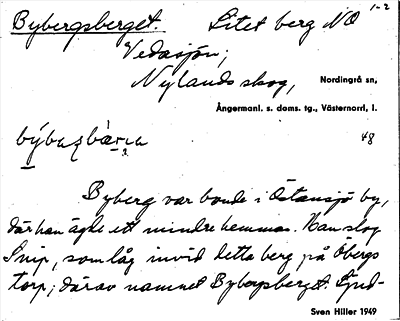 Bybergsberget. Litet berg NO 1-2
Vedasjön;
Nylands skog, Nordingrå sn,
Ångermanl. s. doms. tg., Västernorrl. l.
48
Byberg var bonde i Östansjö by,
där han ägde ett mindre hemman. Han slog
Snip, som låg invid detta berg på Öbergs
torp; därav namnet Bybergsberget.
Sven Hiller 1949